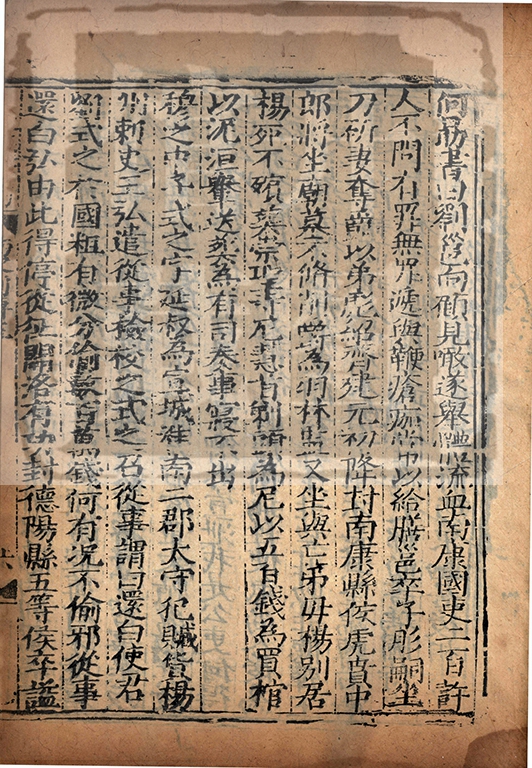 何勗書曰劉邕向顧見噉遂舉體流血南康國吏二百許
人不問有罪無罪遞與鞭瘡痂常以給膳邕卒子肜嗣坐
刀斫妻奪爵以弟彪紹齊建元初降封南康縣侯虎賁中
郎將坐廟墓不脩削爵為羽林監又坐與亡弟母楊別居
楊死不殯葬崇聖寺尼慧首剃頭為尼以五百錢為買棺
以泥洹轝送葬為有司奏事寢不出
穆之中子式之字延叔為宣城淮南二郡太守犯贓貨楊
州刺史王弘遣從事檢校之式之召從事謂曰還白使君
劉式之於國粗有微分偷數百萬錢何有況不偷邪從事
還白弘由此得停從征關洛有功封德陽縣五等侯卒謚
六